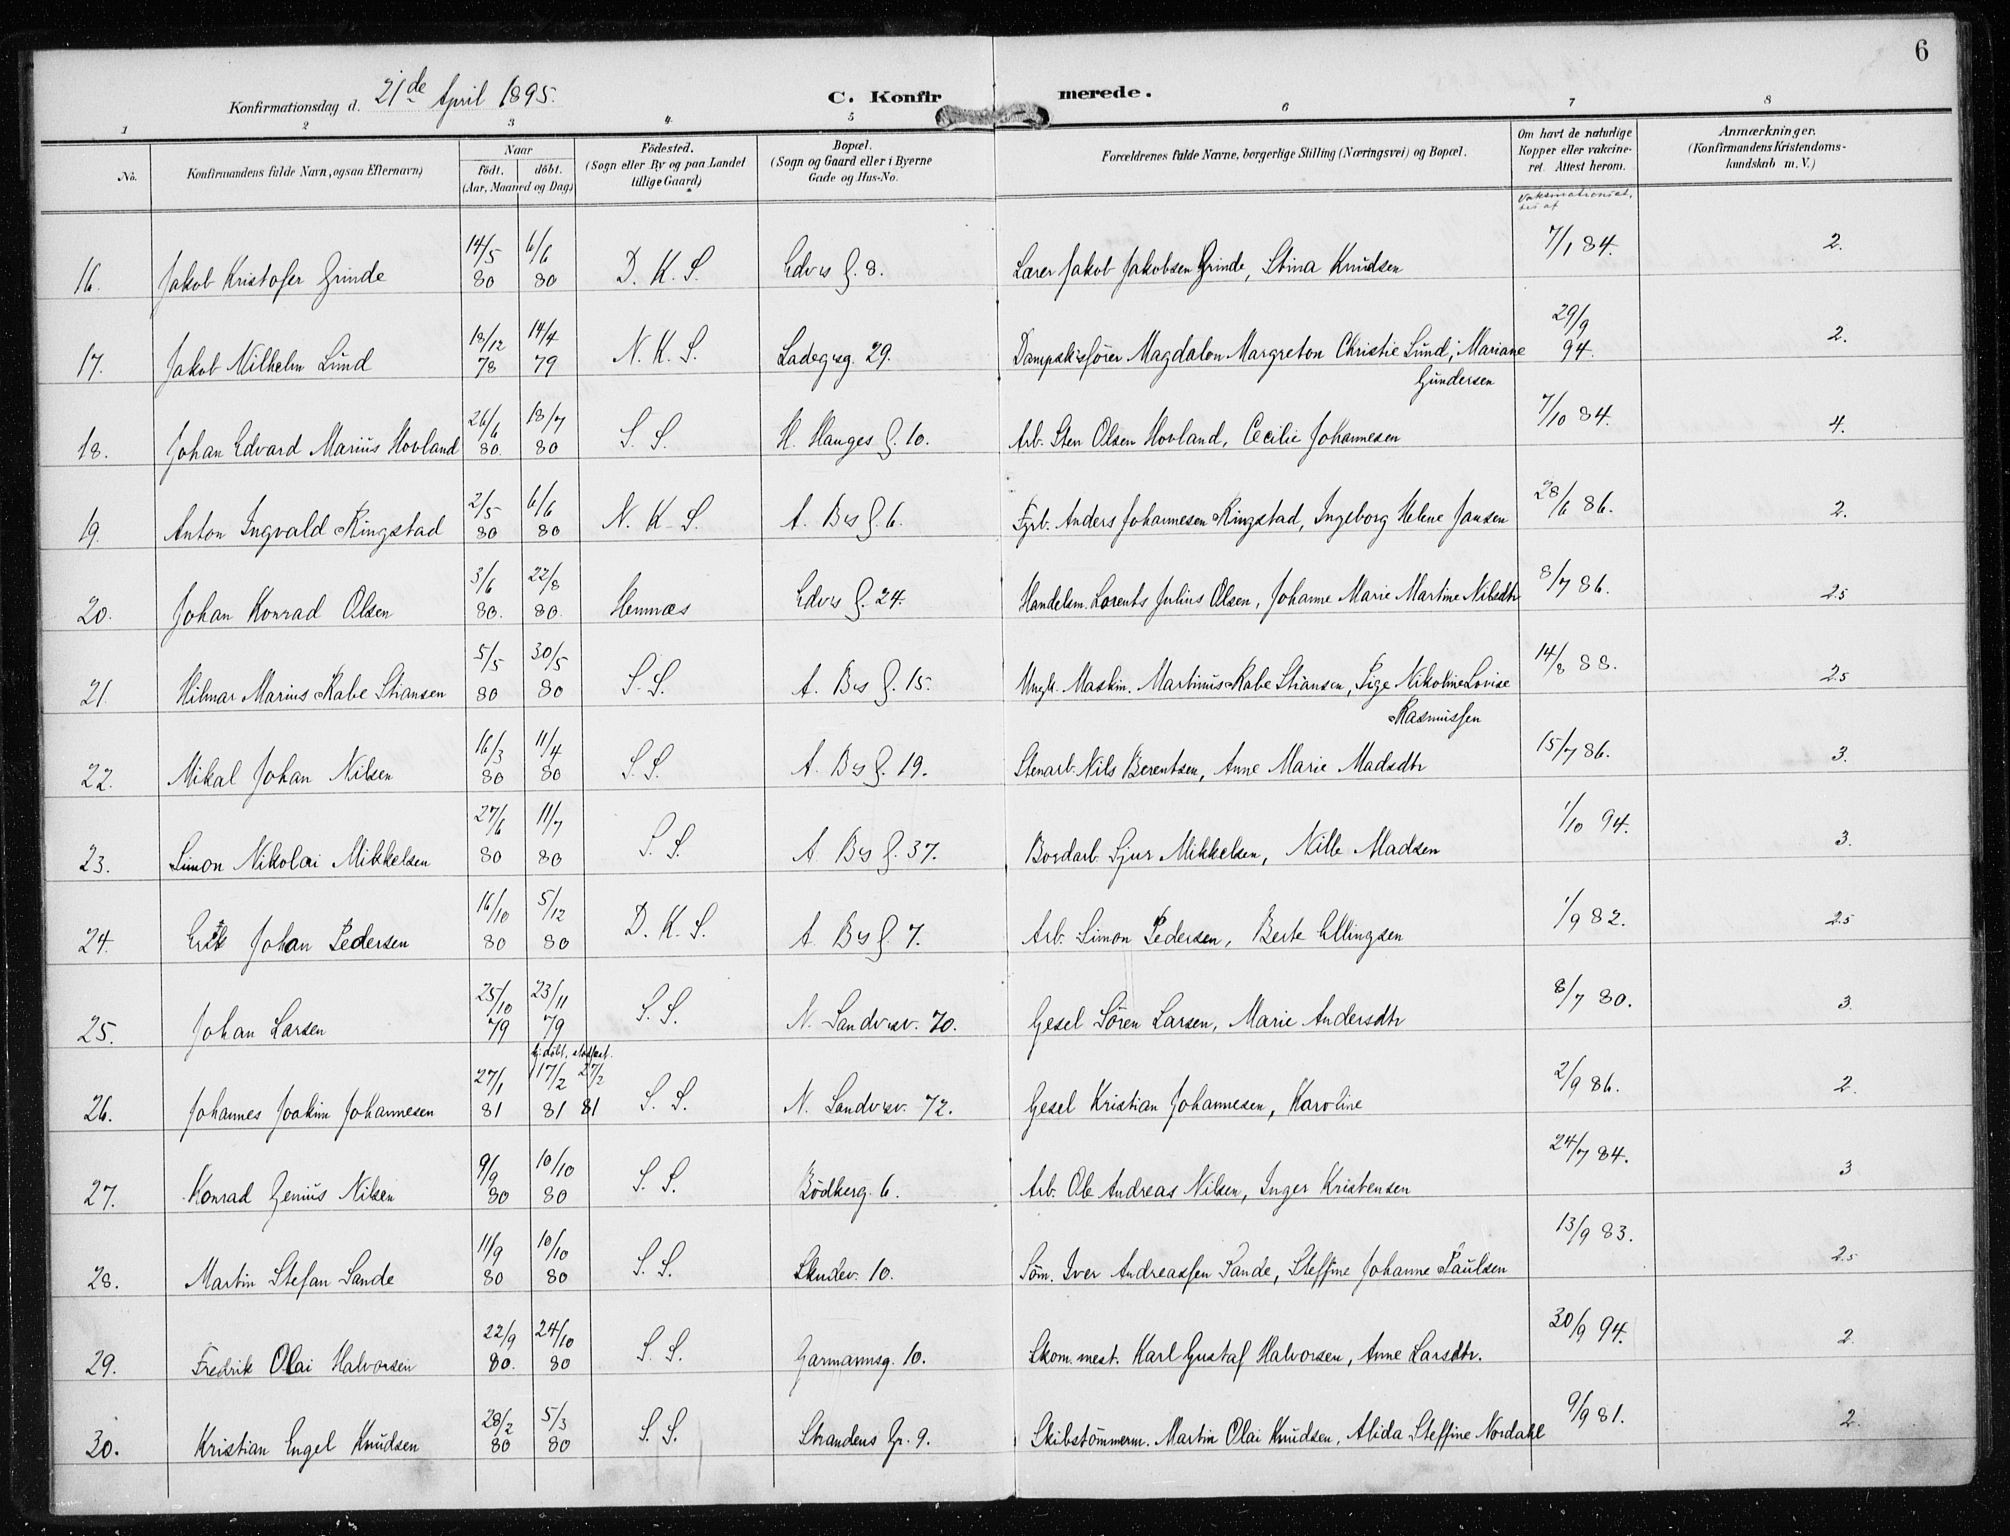 6
Konfirmationsdag d. 21de April 1895.
C. Konfirmerede.
1 2 3 4 5 6 7 8
No.
Konfirmandens fulde Navn, ogsaa Efternavn)
Naar
födt. döbt.
(Aar, Maaned og Dag)
Födested.
(Sogn eller By og paa Landet
tillige Gaard)
Bopæl.
(Sogn og Gaard eller i Byerne
Gade og Hus-No.
Forældrenes fulde Navne, borgerlige Stilling (Næringsvei) og Bopæl.
Om havt de naturlige
Kopper eller vakcine-
ret. Attest herom.
Anmærkninger.
(Konfirmandens Kristendoms-
kundskab m. V.)
16. Jakob Kristofer Grinde 14/5 80 6/6 80 D. K. S. Edvs g. 8. Lærer Jakob Jakobsen Grinde, Stina Knudsen 7/1 84. 2.
17. Jakob Vilhelm Lund 18/12 78 14/4 79 N. K. S. Ladegsg. 29. Dampsksfører Magdalon Margreton Christie Lund, Mariane 29/9 94. 2.
Gundersen
18. Johan Edvard Marius Hovland 26/6 80 18/7 80 S. S. H. Hauges g. 10. Arb. Sten Olsen Hovland, Cecilie Johannesen 7/10 84. 4.
19. Anton Ingvald Ringstad 2/5 80 6/6 80 N. K. S. A. Bs g. 6. Fyrb. Anders Johannesen Ringstad, Ingeborg Helene Jansen 28/6 86. 2.
20. Johan Konrad Olsen 3/6 80. 22/8 80. Hemnæs Edvs g. 24. Handelsm. Lorents Julius Olsen, Johanne Marie Martine Nilsdtr 8/7 86. 2.5
21. Hilmar Marius Rabe Stiansen 5/5 80 30/5 80 S. S. A. Bs g. 15. Ungk. Maskin. Martinus Rabe Stiansen, Pige Nikoline Lovise 14/8 88. 2.5
Rasmussen
22. Mikal Johan Nilsen 16/3 80 11/4 80 S. S. A. Bs g. 19. Stenarb. Nils Berentsen, Anne Marie Madsdtr 15/7 86. 3.
23. Simon Nikolai Mikkelsen 27/6 80 11/7 80 S. S. A. Bs g. 37. Bordarb. Sjur Mikkelsen, Nille Madsen 1/10 94. 3.
24. Erik Johan Pedersen 16/10 80 5/12 80 D. K. S. A. Bs g. 7. Arb. Simon Pedersen, Berte Ellingsen 1/9 82. 2.5
25. Johan Larsen 25/10 79 23/11 79 S. S. N. Sandvsv. 70. Gesel Sören Larsen, Marie Andersdtr 8/7 80. 3.
hj.döbt. stadfæst.
26. Johannes Joakim Johannesen 27/1 81 17/2 81 27/2 81 S. S. N. Sandvsv. 72. Gesel Kristian Johannesen, Karoline 2/9 86. 2.
27. Konrad Genius Nilsen 9/9 80 10/10 80 S. S. Bödkerg. 6. Arb. Ole Andreas Nilsen, Inger Kristensen 24/7 84. 3
28. Martin Stefan Sande 11/9 80 10/10 80 S. S. Skudev. 10. Söm. Iver Andreassen Sande, Steffine Johanne Paulsen 13/9 83. 2.5
29. Fredrik Olai Halvorsen 22/9 80. 24/10 80 S. S. Garmannsg. 10. Skom.mest. Karl Gustaf Halvorsen, Anne Larsdtr. 30/9 94. 2
30. Kristian Engel Knudsen 28/2 80 5/3 80 S. S. Strandens Gr. 9. Skibstömmerm. Martin Olai Knudsen, Alida Steffine Nordahl 9/9 81. 2.